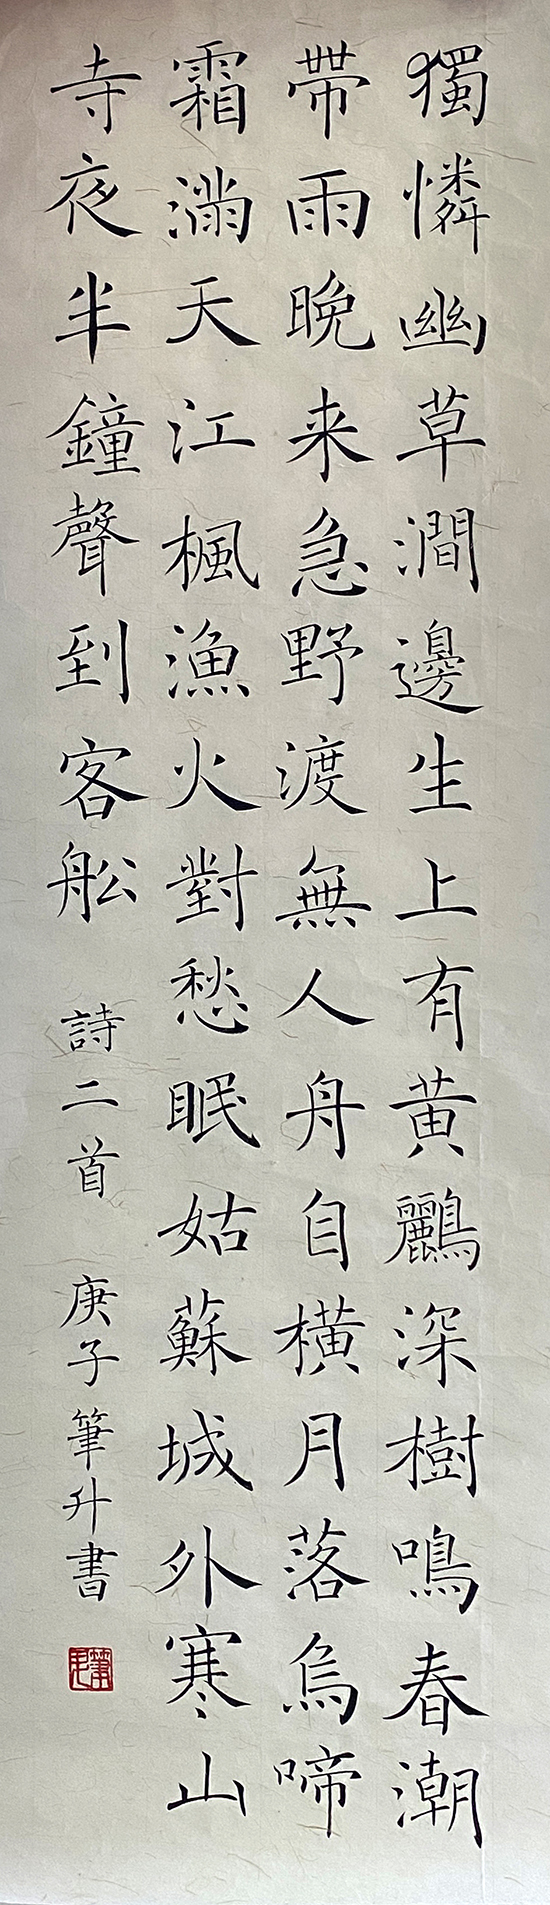 獨憐幽草澗邊生上有黃鸝深樹鳴春潮
帶雨晚来急野渡無人舟自橫月落烏啼
霜滿天江楓漁火對愁眠姑蘇城外寒山
寺夜半鐘聲到客舩 詩二首 庚子筆升書